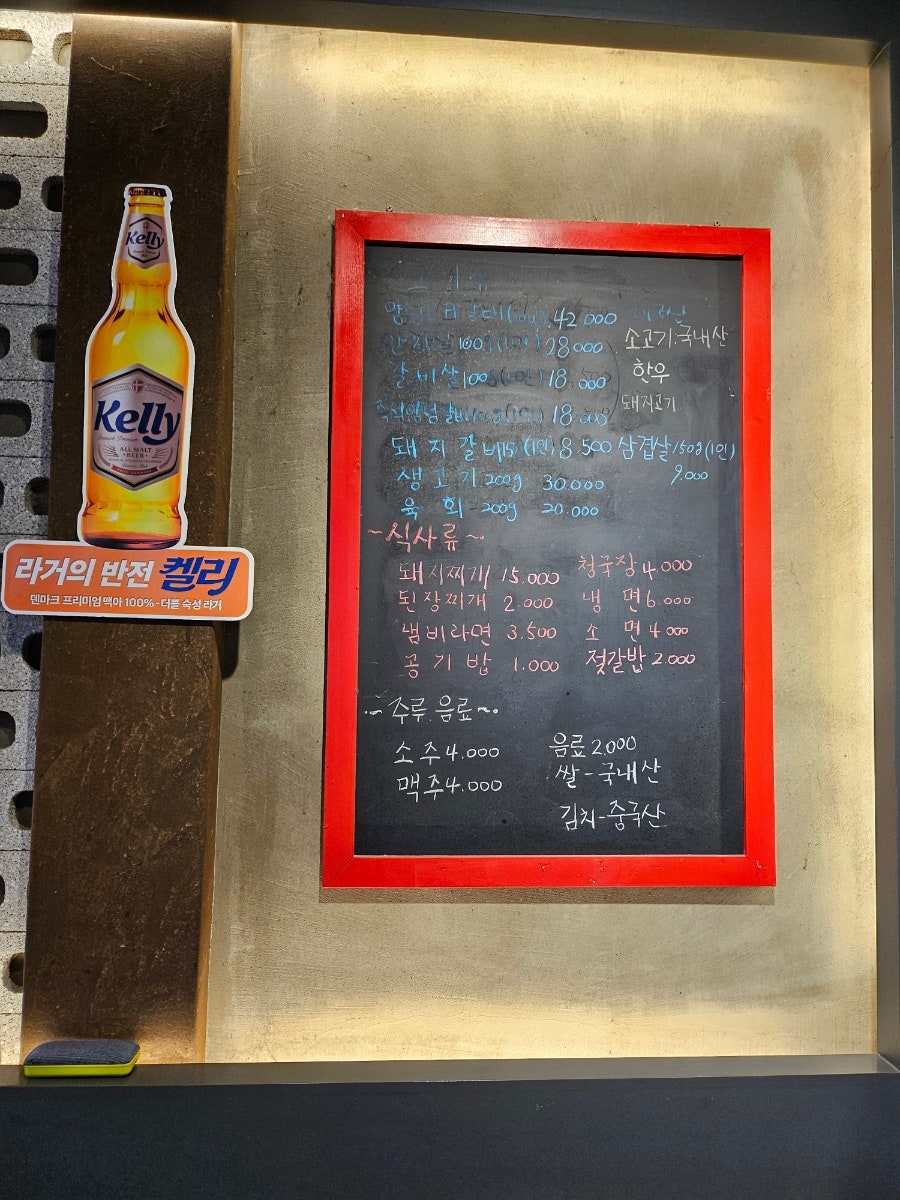 Kelly
Kelly
ALL MALT
BEER
라거의 반전 켈리
덴마크 프리미엄 맥아 100% - 더블 숙성 라거
42.000
100g(1인) 28.000
갈비살 100g(1인) 18.000
18.000
소고기:국내산
한우
돼지고기
돼지갈비 (1인) 8 500 삼겹살 150g(1인)
9.000
생고기 200g 30.000
육 회 200g 20.000
~식사류~
돼지찌개 15.000 청국장 4.000
된장찌개 2.000 냉 면 6.000
냄비라면 3.500 소 면 4 000
공기밥 1.000 젓갈밥 2.000
~주류.음료~
소주 4.000 음료 2.000
맥주 4.000 쌀-국내산
김치-중국산